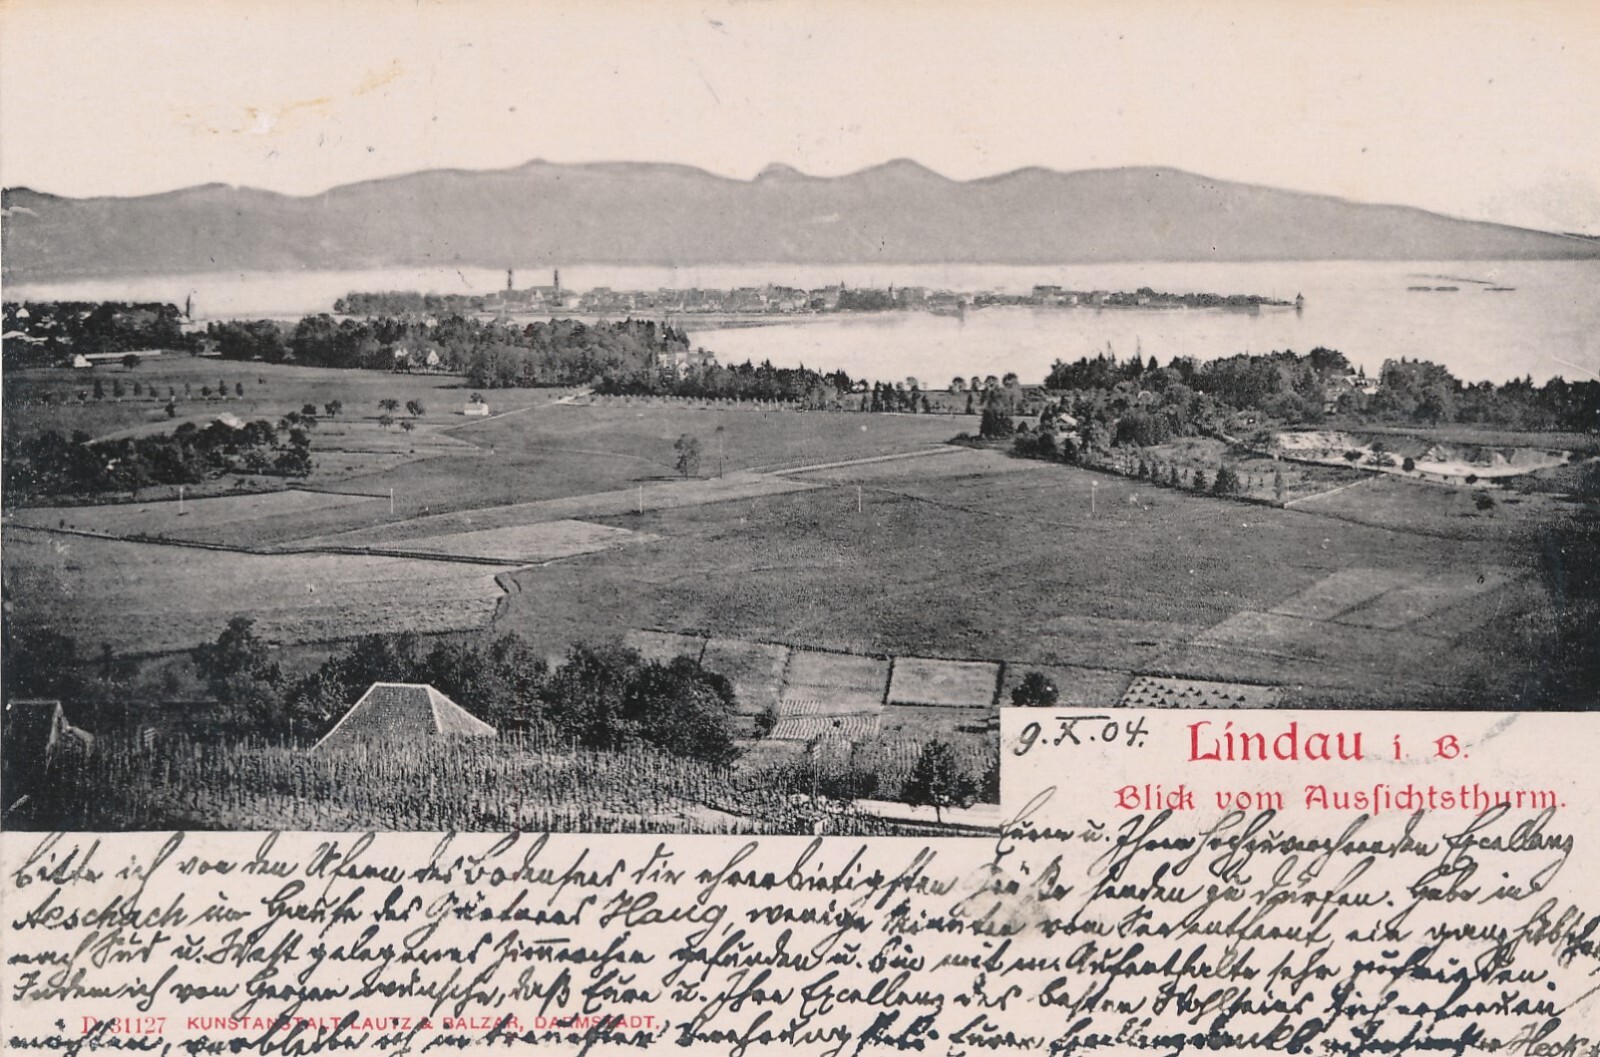 9.X.04.
Lindau i. B.
Blick vom Aussichtsthurm.
Euren u. Ihrer hochzuverehrenden Excellenz
bitte ich von den Ufern des Bodensees die ehrerbietigsten Grüße senden zu dürfen. Habe in
Aeschach im Hause des Gärtners Haug, wenige Minuten vom See entfernt, ein ganz hübsches
nach Süd u. West gelegenes Zimmerchen gefunden u. bin mit m. Aufenthalte sehr zufrieden.
Indem ich von Herzen wünsche, daß Eure u. Ihre Excellenz des besten Wohlseins sich erfreuen
möchten, verbleibe ich in treuester Verehrung stets Eurer Excellenz dankb.
D 31127 KUNSTANSTALT LAUTZ & BALZAR, DARMSTADT.